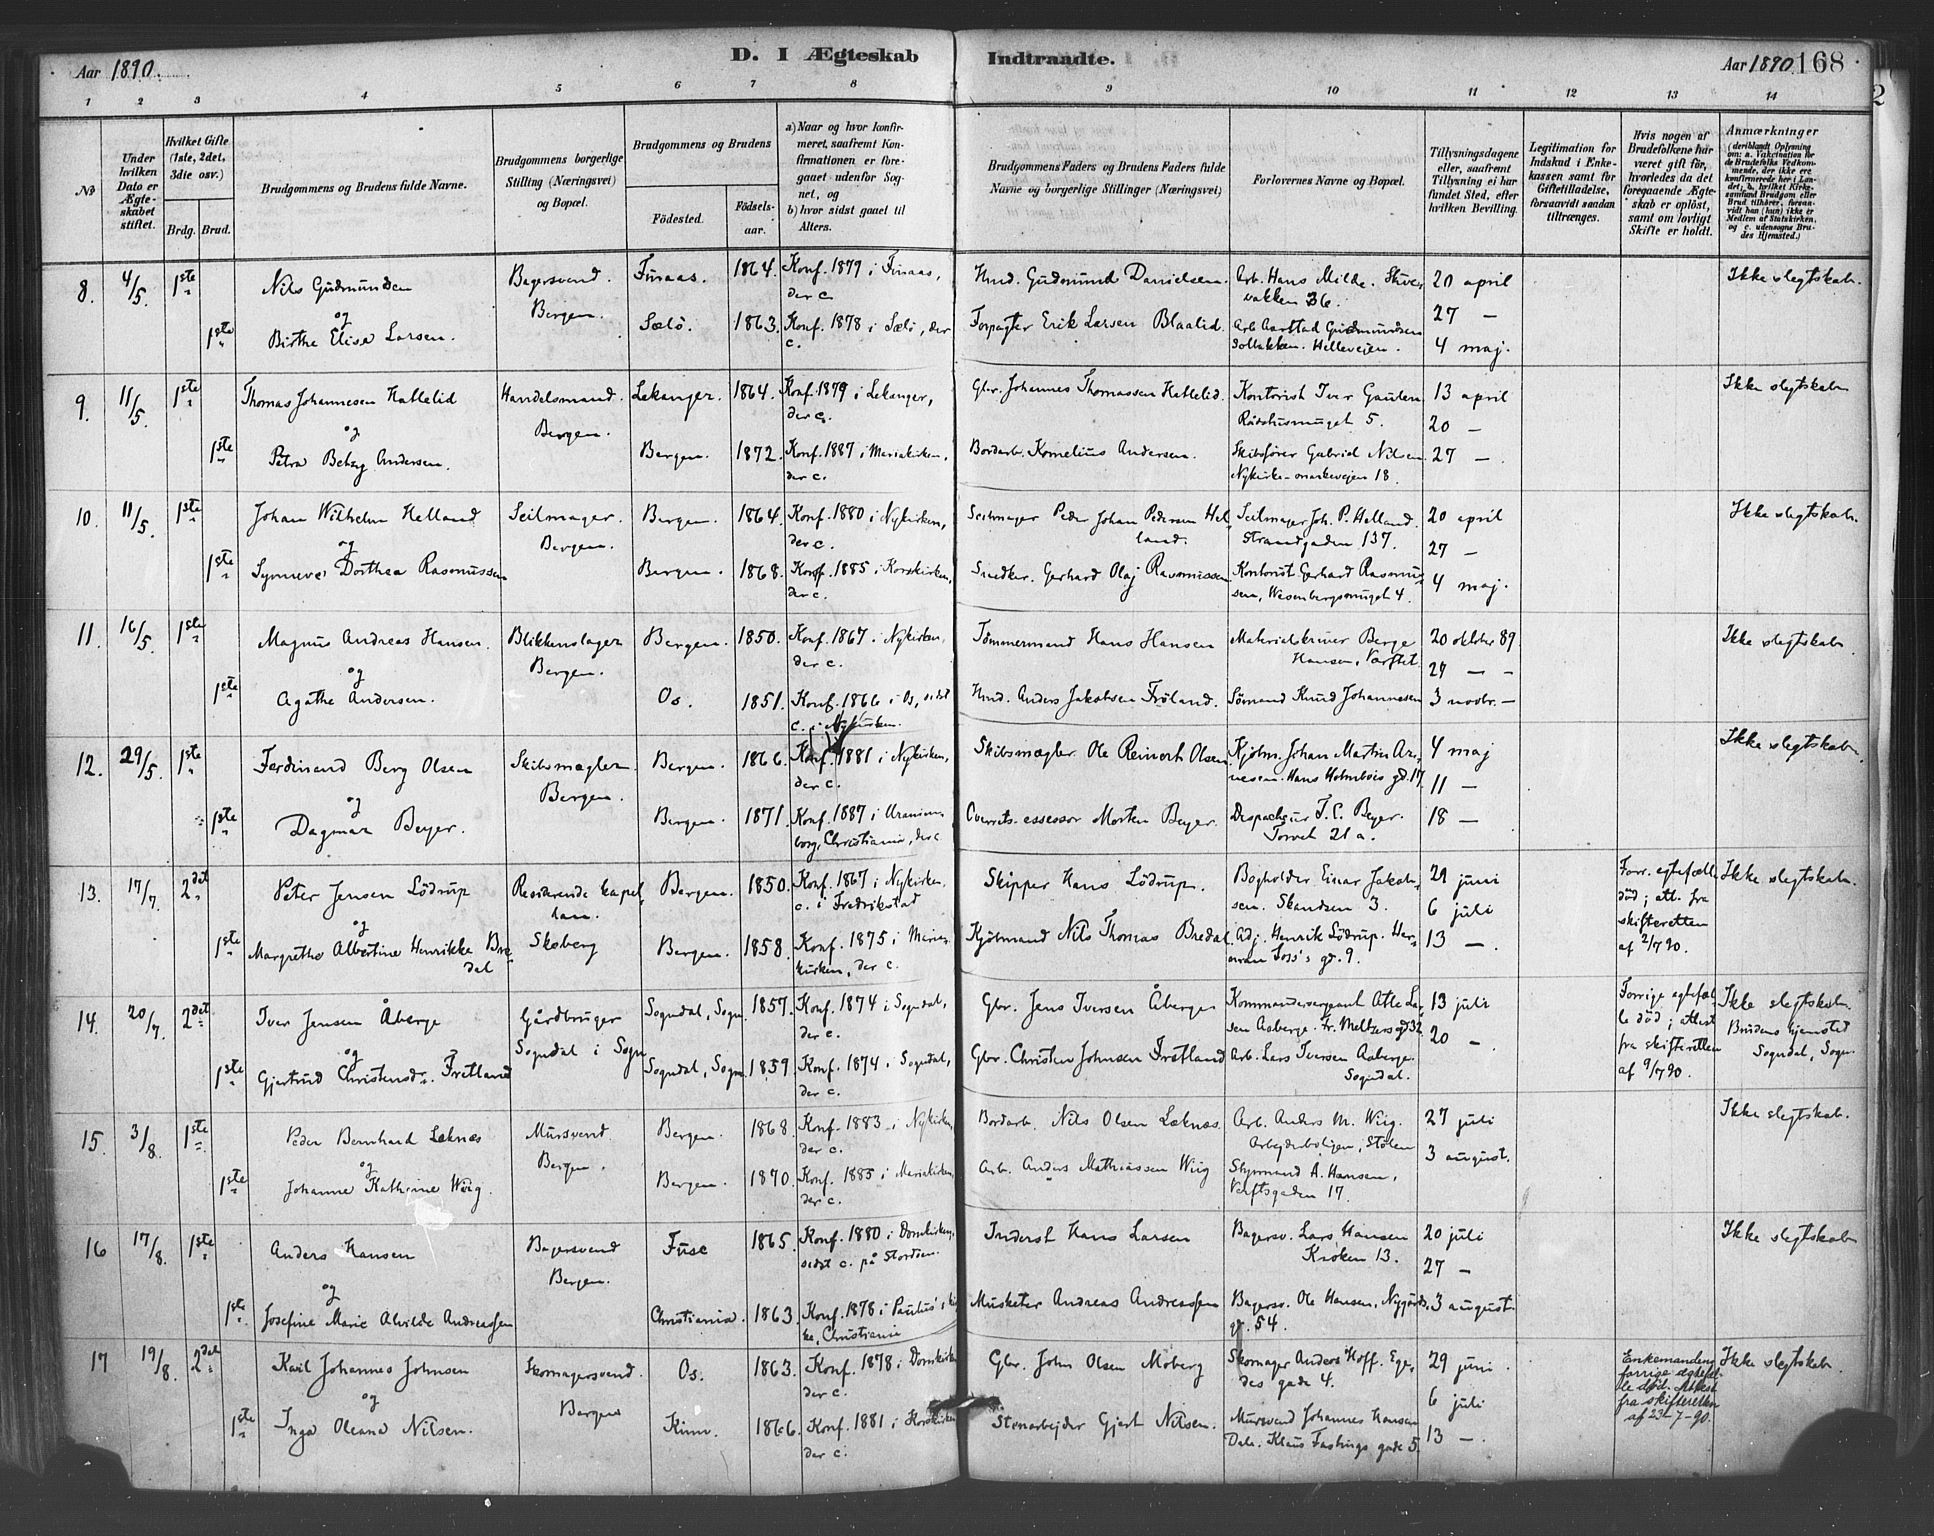 Aar 1890.
D. I Ægteskab Indtraadte.
Aar 1890 168
1 2 3 4 5 6 7 8 9 10 11 12 13 14
No
Under hvilken Dato er Ægteskabet stiftet.
Hvilket Gifte (1ste, 2det, 3die osv.)
Brdg. Brud.
Brudgommens og Brudens fulde Navne.
Brudgommens borgerlige Stilling (Næringsvei) og Bopæl.
Brudgommens og Brudens
Födested.
Födsels-aar.
a) Naar og hvor konfirmeret, saafremt Konfirmationen er foregaaet udenfor Sognet, og
b) hvor sidst gaaet til Alters.
Brudgommens Faders og Brudens Faders fulde Navne og borgerlige Stillinger (Næringsvei)
Forlovernes Navne og Bopæl.
Tillysningsdagene eller, saafremt Tillysning ei har fundet Sted, efter hvilken Bevilling.
Legitimation for Indskud i Enkekassen samt for Giftetilladelse, forsaavidt saadan tiltrænges.
Hvis nogen af Brudefolkene har været gift för, hvorledes da det foregaaende Ægteskab er oplöst, samt om lovligt Skifte er holdt.
Anmærkninger
8. 4/5 1ste Nils Gudmundsen Bagersvend. Bergen. Fusaas. 1864. Konf. 1879 i Fusaas, der c. Hmd. Gudmund Danielsen Arb. Hans Milde. 20 april Ikke slegtskab.
og 27 —
1ste Birthe Elise Larsen. Sælö. 1863. Konf. 1878 i Sælö, der c. Forpagter Erik Larsen Blaalid. Arb. Aarstad Gudmundsen Solbakken. Hellevejen. 4 maj.
9. 11/5 1ste Thomas Johannesen Hattelid Handelsmand. Bergen. Lekanger. 1864. Konf. 1879 i Lekanger, der c. Gbr. Johannes Thomassen Hattelid. Kontorist Iver Gaulen Rådshusmuget 5. 13 april Ikke slegtskab
og 20 —
1ste Petra Betsy Andersen. Bergen. 1872. Konf. 1887 i Mariakirken, der c. Bordarb. Kornelius Andersen. Skibsförer Gabriel Nilsen Nykirke-smarkevejen 18. 27 —
10. 11/5 1ste Johan Wilhelm Helland Seilmager. Bergen. Bergen. 1864. Konf. 1880 i Nykirken, der c. Seilmager Peder Johan Pedersen Helland. Seilmager Joh. P. Helland. Strandgaden 137. 20 april Ikke slegtskab.
og 27 —
1ste Synneve Dorthea Rasmussen Bergen. 1868. Konf. 1885 i Korskirken, der c. Snedker. Gerhard Olaj Rasmussen Kontorist Gerhard Rasmussen, Wesenbergsmuget 4. 4 maj.
11. 16/5 1ste Magnus Andreas Hansen. Blikkenslager Bergen. Bergen. 1850. Konf. 1867 i Nykirken, der c. Tömmermand Hans Hansen Berge Hansen, Verftet 20 oktbr 89. Ikke slegtskab
og 27 — —
1ste Agathe Andersen. Os. 1851. Konf. 1866 i Os, sidst c. i Nykirken. Hmd. Anders Jakobsen Fröland. Sömand Knud Johannesen 3 novbr. —
12. 29/5 1ste Ferdinand Berg Olsen Skibsmægler. Bergen. Bergen. 1866. Konf. 1881 i Nykirken, der c. Skibsmægler Ole Reinert Olsen Kjöbm. Johan Martin Arnesen. Hans Holmboes gd. 17 4 maj Ikke slegtskab
og 11 —
1ste Dagmar Beyer. Bergen. 1871. Konf. 1887 i Uranienborg, Christiania, der c Overrets-assessor Morten Beyer. Despacheur F. C. Beyer. Torvet 21 a. 18 —
13. 17/7. 2det Peter Jensen Lödrup Residerende kapellan. Skeberg Bergen. 1850. Konf. 1867 i Nykirken. c. i Fredrikstad Skipper Hans Lödrup. Bogholder Einar Jakobsen. Skandsen 3. 29 juni Forr. egtefælle död; att. fra skifteretten af 2/7 90. Ikke slegtskab.
og 6 juli
1ste Margrethe Albertine Henrikke Bredal Bergen. 1858. Konf. 1875 i Mariekirken, der c. Kjöbmand Nils Thomas Bredal Adj. Henrik Lödrup. Herman Foss's gd. 9. 13 —.
14. 20/7. 2det Iver Jensen Åberge Gårdbruger Sogndal i Sogn Sogndal, Sogn. 1857. Konf. 1874 i Sogndal, der c. Gbr. Jens Iversen Åberge Kommandersergeant Atle Larsen Aaberge. Fr. Meltzersgd 32. 13 juli Forrige egtefælle död; attest fra skifteretten af 9/7 90. Ikke slegtskab. Brudens hjemsted Sogndal, Sogn.
og 20 —
1ste Gjertrud Christensdr. Fretland Sogndal, Sogn. 1859. Konf. 1874 i Sogndal, der c. Gbr. Christen Johnsen Fretland Arb. Lars Iversen Aaberge. Sogndal.
15. 3/8. 1ste Peder Bernhard Leknæs Mursvend. Bergen. Bergen. 1868. Konf. 1883 i Nykirken, der c. Bordarb. Nils Olsen Leknæs. Arb. Anders M. Wiig. Arbejderboligen, Stölen 27 juli Ikke slegtskab.
og
1ste Johanne Kathrine Wiig. Bergen. 1870. Konf. 1885 i Mariakirken, der c. Arb. Anders Mathiassen Wiig Styrmand A. Hansen, Verftsgaden 17. 3 august.
16 17/8. 1ste Anders Hansen Bagersvend Bergen. Fuse 1865. Konf. 1880 i Domkirken, sidst c. på Stordöen. Inderst Hans Larsen Bagersv. Lars Hansen Kroken 13. 20 juli Ikke slegtskab
og 27 —
1ste Josefine Marie Alvilde Andreassen Christiania. 1863. Konf. 1878 i Paulus' kirke, Christiania Musketer Andreas Andreassen Bagersv. Ole Hansen, Nygårdsgd. 54. 3 august.
17 19/8. 2det Karl Johannes Johnsen Skomagersvend. Bergen Os. 1863. Konf. 1878 i Domkirken der c. Gbr. John Olsen Moberg Skomager Anders Hoff. Egedes gade 4. 29 juni Enkemandens forrige ægtefælle död. Attest fra skifteretten af 23-7-90. Ikke slegtskab
og 6 juli
1ste Inga Oleana Nilsen. Kinn. 1866. Konf. 1881 i Korskirken der c. Stenarbejder Gjert Nilsen. Mursvend Johannes Hansen Dale. Klaus Fastings gade 5. 13 —.